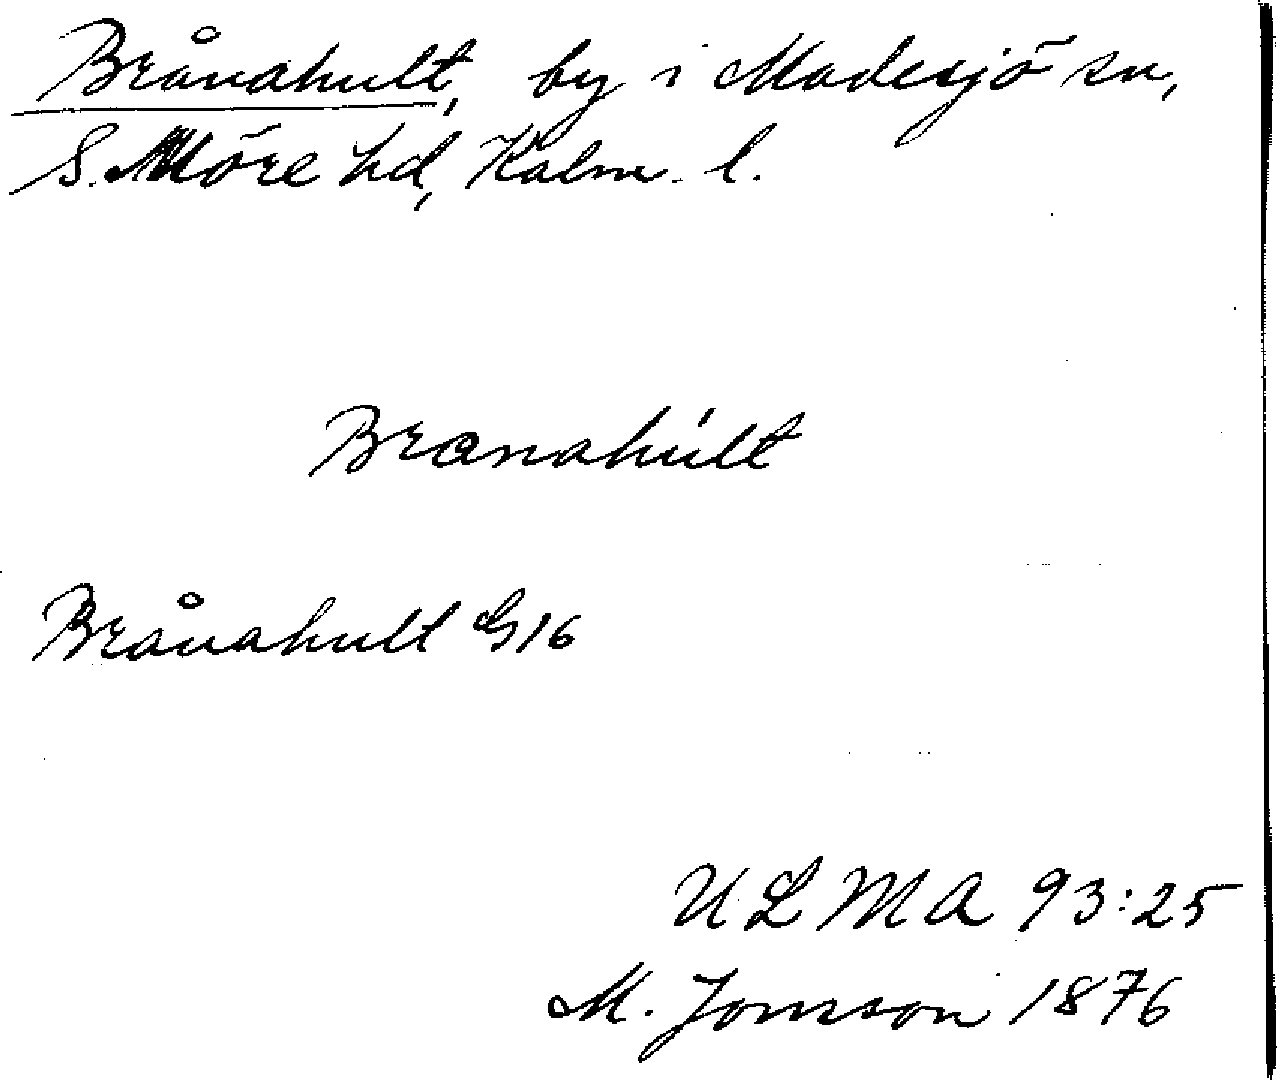 Brånahult, by i Madesjö sn,
S. Möre hd, Kalm. l.
Branahult
Brånahult G16
ULMA 93:25
M. Jonsson 1876